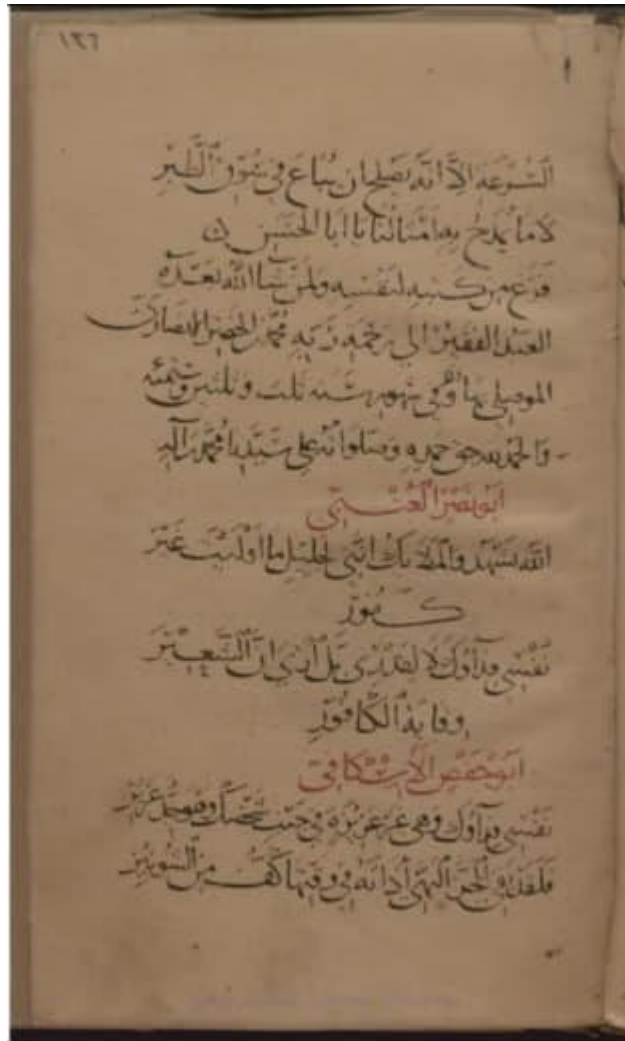 ١٣٦
الا انه يصلح ان يباع في سوق الطير
لا ما يمدح به امثالنا يا ابا الحسن
فرغ من كتبه لنفسه ولمن شا الله بعده
العبد الفقير الى رحمة ربه محمد بن الخضر
الموصلي بها في شهور سنه ثلث وثلثين
والحمد لله حق حمده وصلواته على سيدنا محمد وآله
ابو نصر العتبي
الله يشهد والملايك انني لجليل ما اوليت غير
كفور
نفسي فداؤك لا لقدري بل ارى ان الشعير
وقاية الكافور
ابو حفص
نفسي فداؤك وهي غير عزيزة في جنب شخصك وهو جد عزيز
فلقد يقي الخز البهي اذاته في وقتها كف من الشونيز